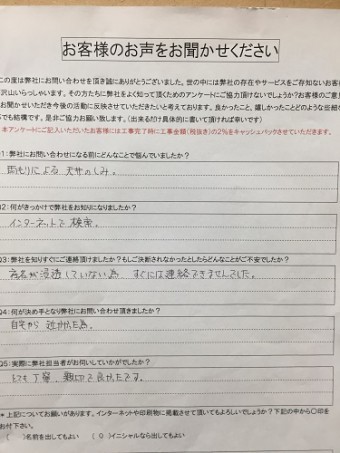 お客様のお声をお聞かせください
この度は弊社にお問い合わせを頂き誠にありがとうございます。世の中には弊社の存在やサービスをご存知ないお客様
沢山いらっしゃいます。その方たちに弊社をよく知って頂くためのアンケートにご協力頂けないでしょうか?お客様のご意見
お聞かせいただき今後の活動に反映させていただきたいと考えております。良かったこと、嬉しかったことどのような些細な
でも結構です。是非ご協力お願い致します。(出来るだけ具体的に書いて頂ければ幸いです)
本アンケートにご記入いただいたお客様には工事完了時に工事金額(税抜き)の2%をキャッシュバックさせていただきます。
Q1:弊社にお問い合わせになる前にどんなことで悩んでいましたか?
雨もりによる 天井のしみ。
Q2:何がきっかけで弊社をお知りになりましたか?
インターネットで検索。
Q3:弊社を知りすぐにご連絡頂けましたか?もしご決断されなかったとしたらどんなことがご不安でしたか?
社名が浸透していない為 すぐには連絡できませんでした。
Q4:何が決め手となり弊社にお問い合わせ頂きましたか?
自宅から 近かった為。
Q5:実際に弊社担当者がお伺いしていかがでしたか?
とても丁寧、親切で良かったです。
* 上記についてお願いがあります。インターネットや印刷物に掲載させて頂いてもよろしいでしょうか?下記の中から〇印を
お付け下さい。
( )名前を出してもよい (○)イニシャルなら出してもよい